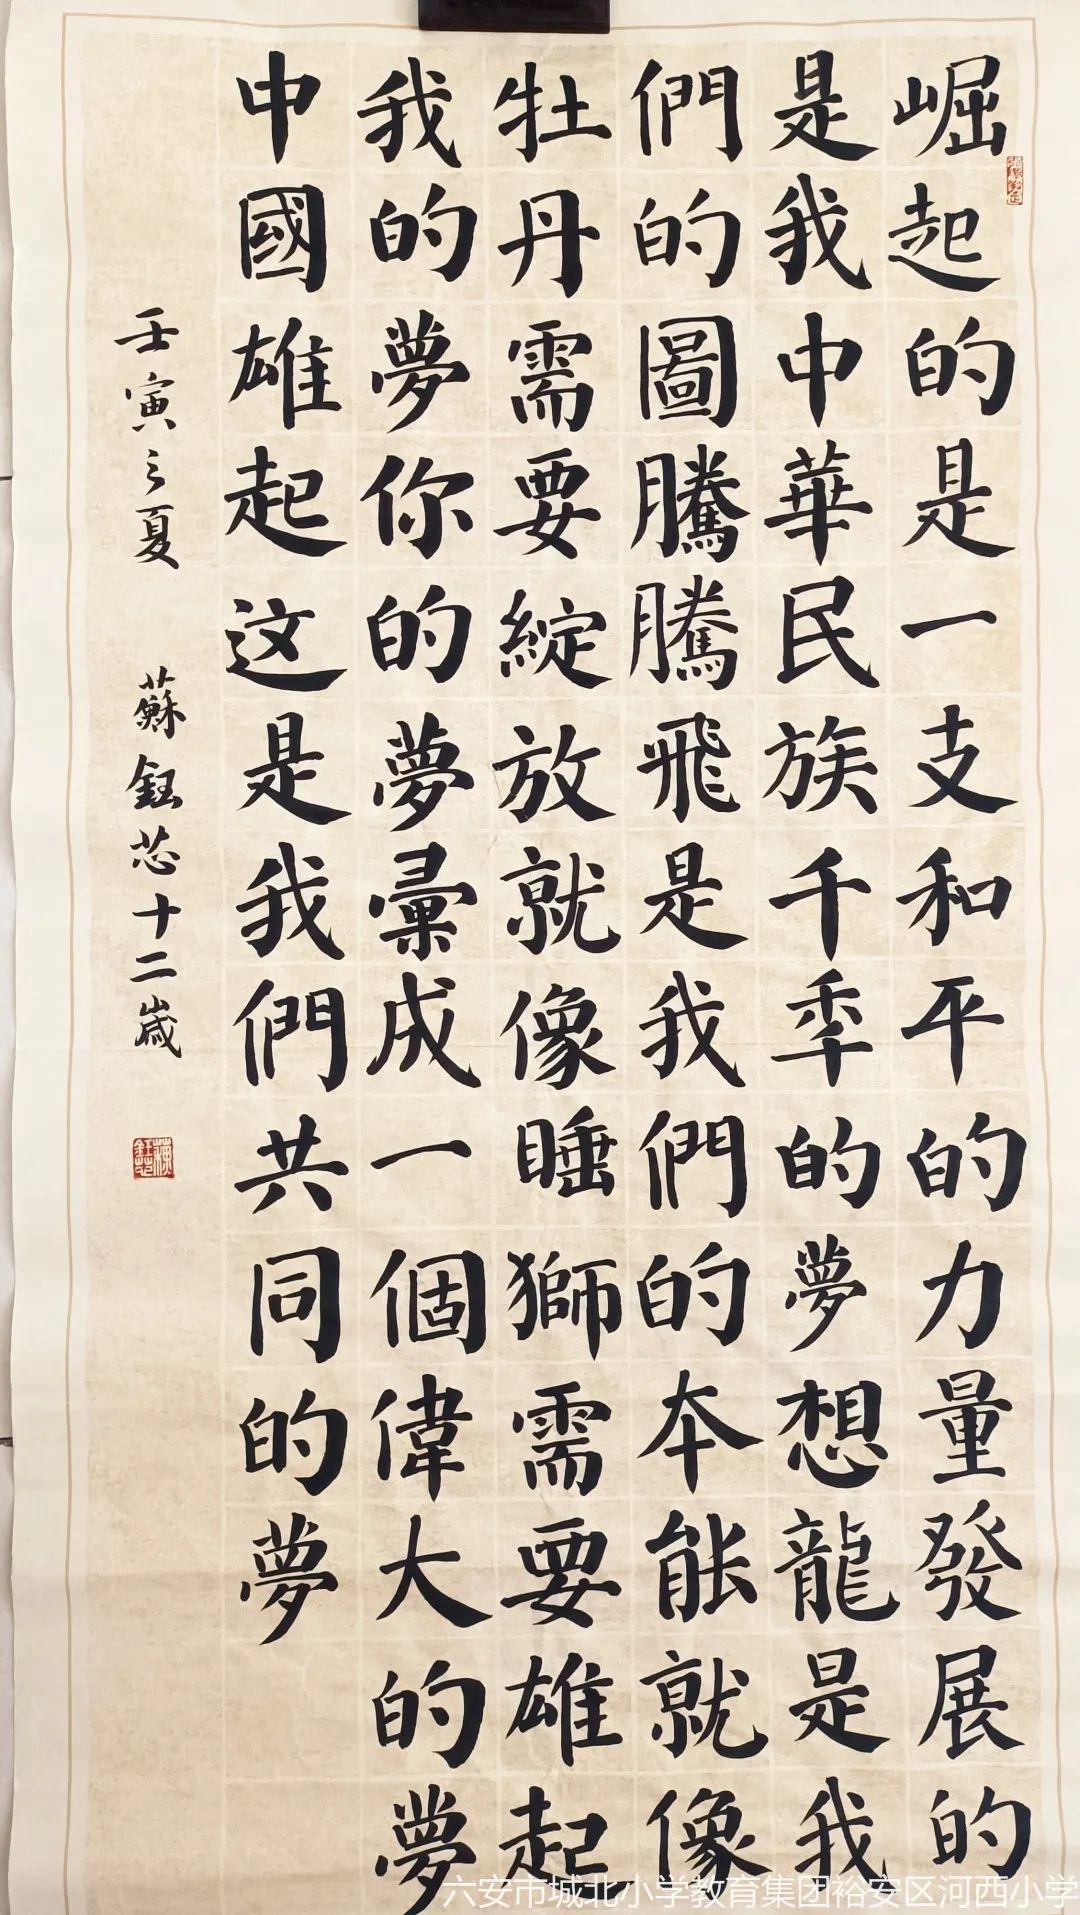 崛起的是一支和平的力量發展的
是我中華民族千秊的夢想龍是我
們的圖騰騰飛是我們的本能就像
牡丹需要綻放就像睡獅需要雄起
我的夢你的夢彙成一個偉大的夢
中國雄起这是我們共同的夢
壬寅之夏 蘇鈺芯十二歲
六安市城北小学教育集团裕安区河西小学